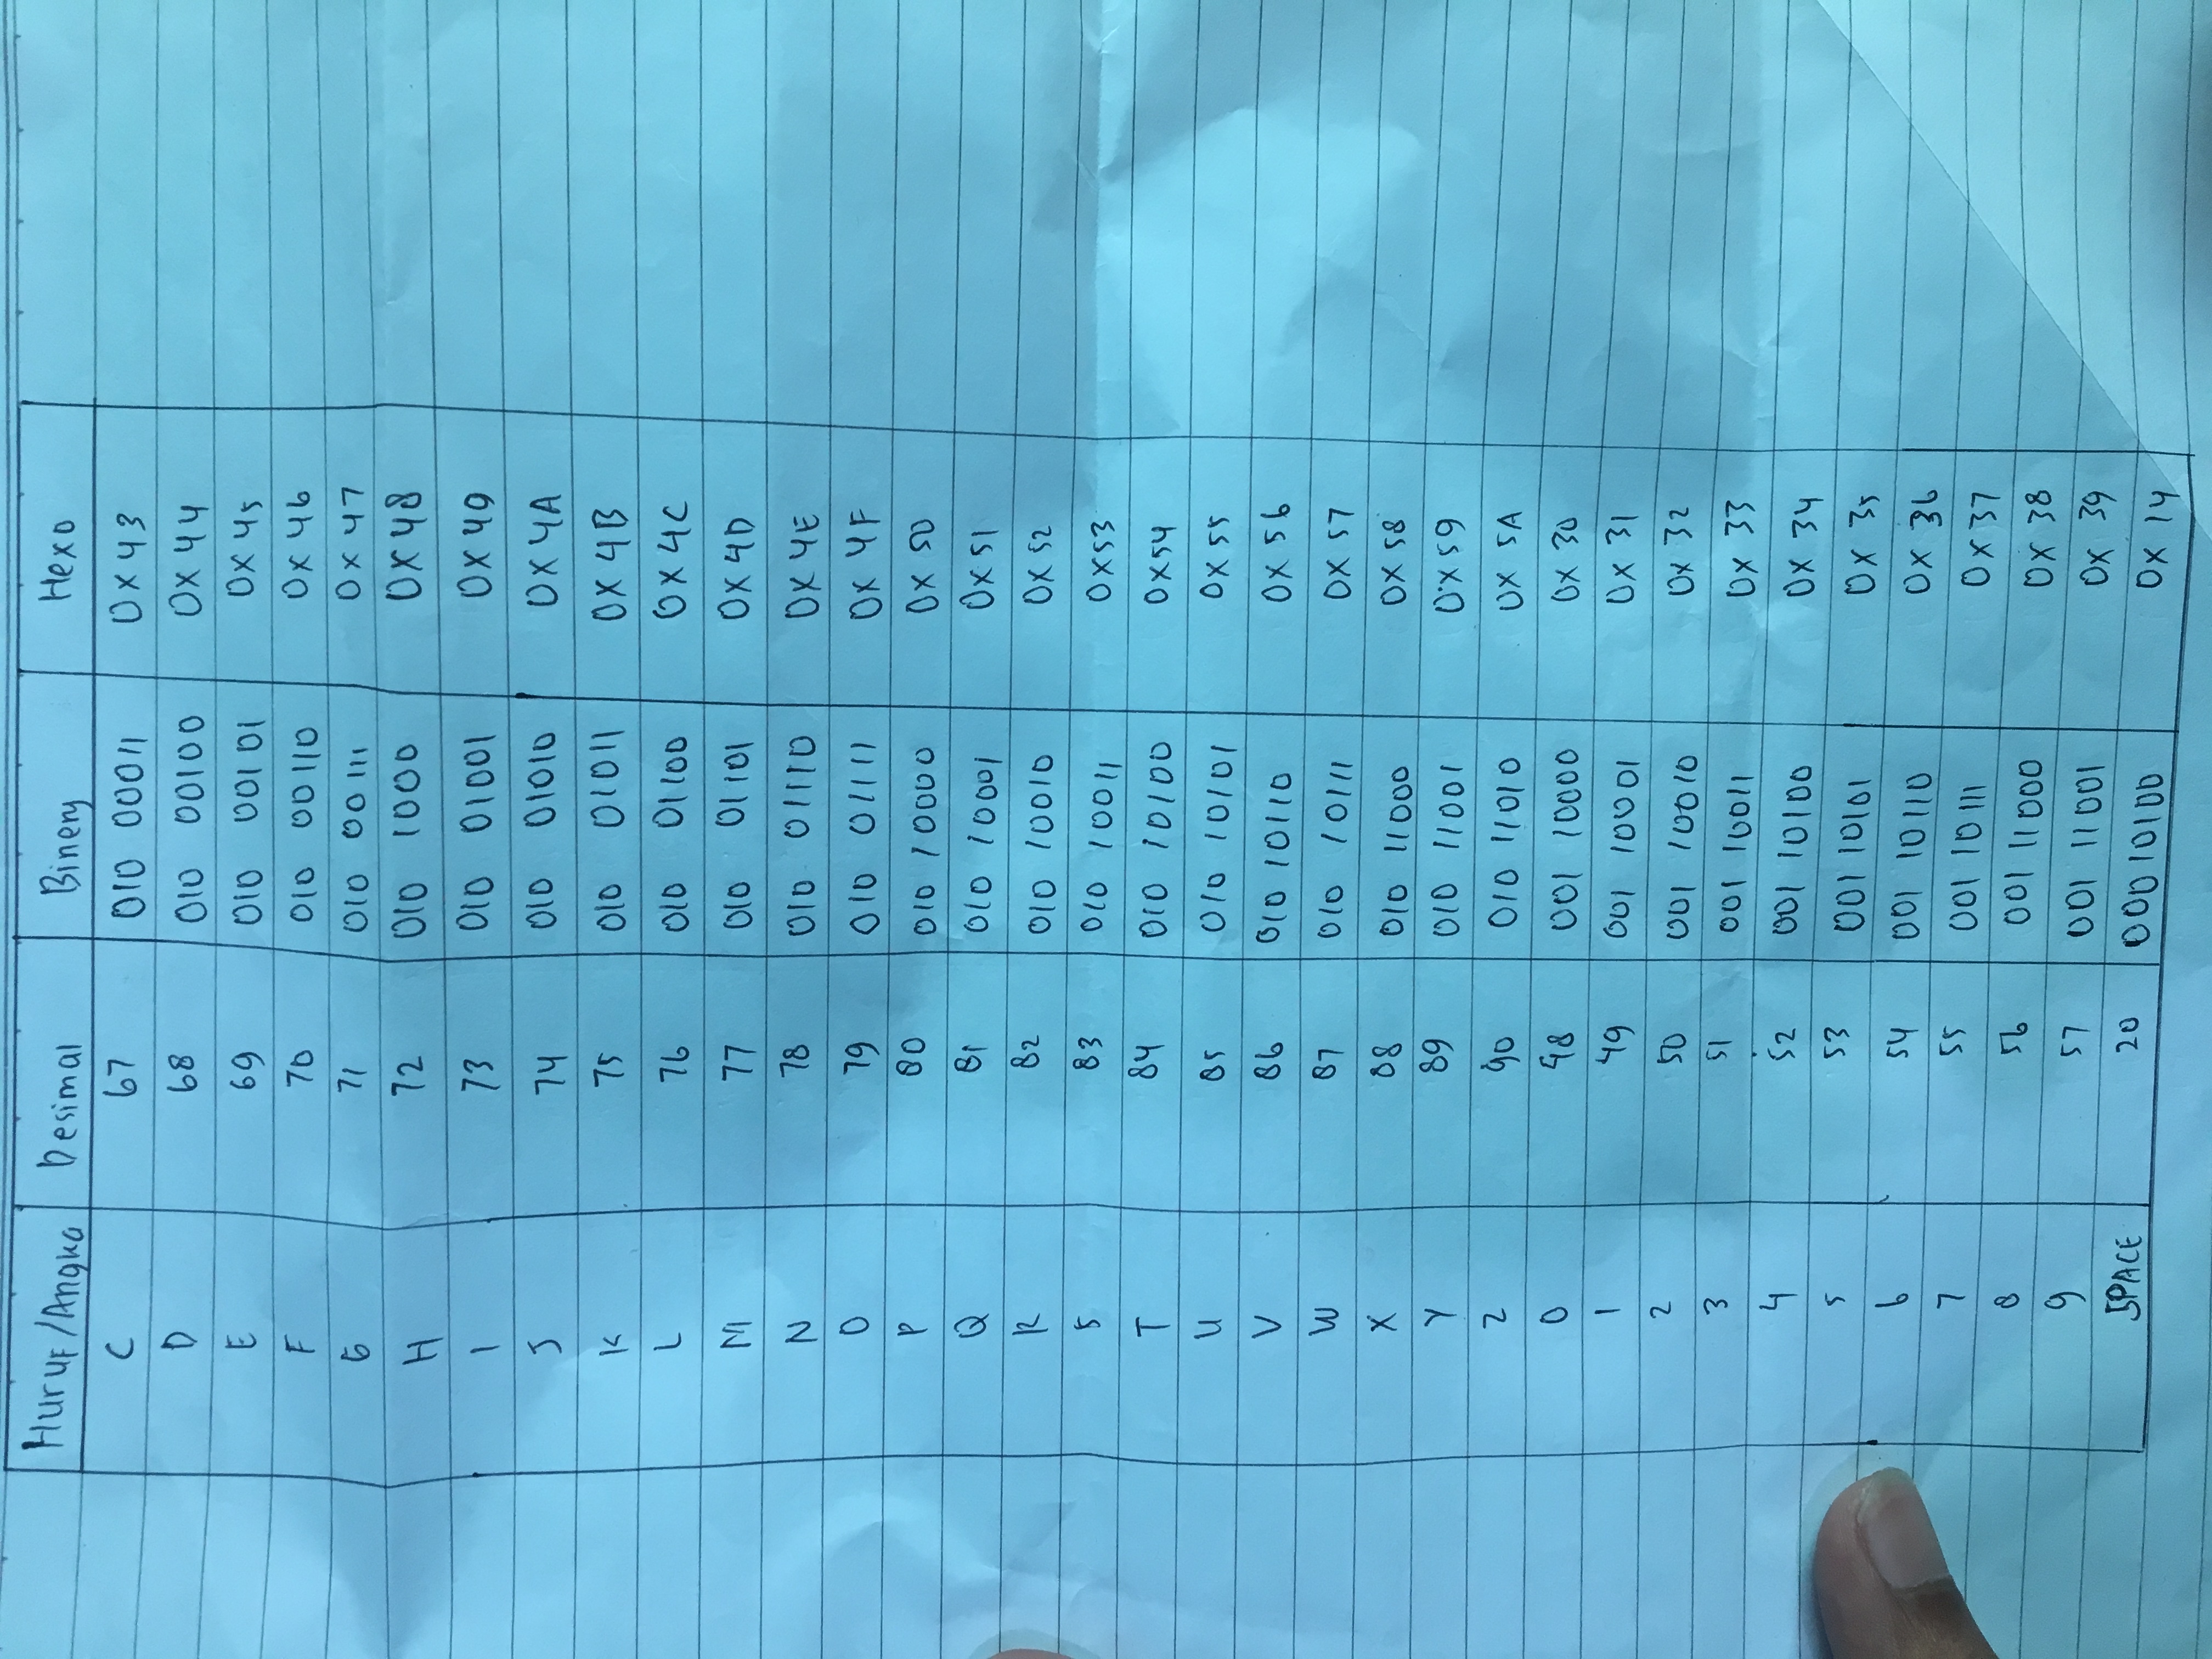 Huruf/Angka Desimal Binery Hexo
C 67 010 00011 0x43
D 68 010 00100 0x44
E 69 010 00101 0x45
F 70 010 00110 0x46
G 71 010 00111 0x47
H 72 010 1000 0x48
I 73 010 01001 0x49
J 74 010 01010 0x4A
K 75 010 01011 0x4B
L 76 010 01100 0x4C
M 77 010 01101 0x4D
N 78 010 01110 0x4E
O 79 010 01111 0x4F
P 80 010 10000 0x50
Q 81 010 10001 0x51
R 82 010 10010 0x52
S 83 010 10011 0x53
T 84 010 10100 0x54
U 85 010 10101 0x55
V 86 010 10110 0x56
W 87 010 10111 0x57
X 88 010 11000 0x58
Y 89 010 11001 0x59
Z 90 010 11010 0x5A
0 48 001 10000 0x30
1 49 001 10001 0x31
2 50 001 10010 0x32
3 51 001 10011 0x33
4 52 001 10100 0x34
5 53 001 10101 0x35
6 54 001 10110 0x36
7 55 001 10111 0x37
8 56 001 11000 0x38
9 57 001 11001 0x39
SPACE 20 00010100 0x14